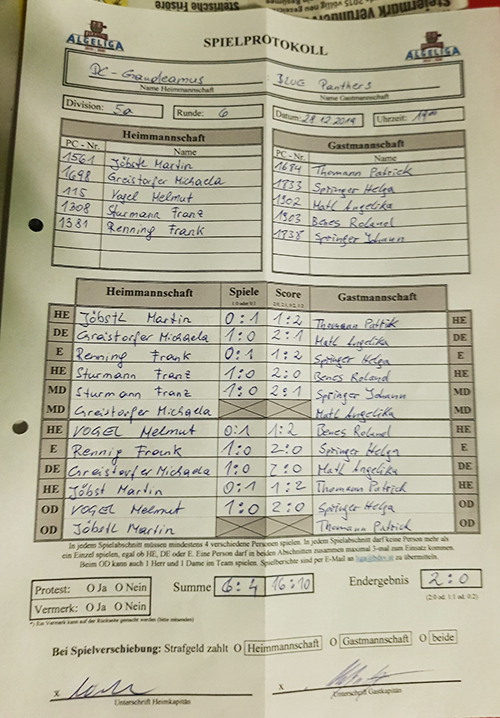 Steirische Frisöre
ALGELIGA
SPIELPROTOKOLL
ALGELIGA
DC-Gaudeamus
BLUE Panthers
Name Heimmannschaft
Name Gastmannschaft
Division: 5a Runde: 6 Datum: 28.12.2019 Uhrzeit: 1900
Heimmannschaft Gastmannschaft
PC - Nr. Name PC - Nr. Name
1561 Jöbstl Martin 1684 Thomann Patrick
1698 Greistorfer Michaela 1833 Springer Helga
115 Vogel Helmut 1902 Matl Angelika
1308 Sturmann Franz 1903 Benes Roland
1381 Renning Frank 1838 Springer Johann
Heimmannschaft Spiele Score Gastmannschaft
HE Jöbstl Martin 0:1 1:2 Thomann Patrik HE
DE Greistorfer Michaela 1:0 2:1 Matl Angelika DE
E Renning Frank 0:1 1:2 Springer Helga E
HE Sturmann Franz 1:0 2:0 Benes Roland HE
MD Sturmann Franz 1:0 2:1 Springer Johann MD
MD Greistorfer Michaela Matl Angelika MD
HE VOGEL Helmut 0:1 1:2 Benes Roland HE
E Rennig Frank 1:0 2:0 Springer Helga E
DE Greistorfer Michaela 1:0 2:0 Matl Angelika DE
HE Jöbst Martin 0:1 1:2 Thomann Patrick HE
OD VOGEL Helmut 1:0 2:0 Springer Helga OD
OD Jöbstl Martin Thomann Patrick OD
In jedem Spielabschnitt müssen mindestens 4 verschiedene Personen spielen. In jedem Spielabschnitt darf keine Person mehr als
ein Einzel spielen, egal ob HE, DE oder E. Eine Person darf in beiden Abschnitten zusammen maximal 3-mal zum Einsatz kommen.
Beim OD kann auch 1 Herr und 1 Dame im Team spielen. Spielberichte sind per E-Mail an zu übermitteln.
Protest: O Ja O Nein Summe 6:4 16:10 Endergebnis 2:0
Vermerk: O Ja O Nein (2:0 od. 1:1 od. 0:2)
*) Ein Vermerk kann auf der Rückseite gemacht werden (bitte mitsenden)
Bei Spielverschiebung: Strafgeld zahlt O Heimmannschaft O Gastmannschaft O beide
x x
Unterschrift Heimkapitän Unterschrift Gastkapitän